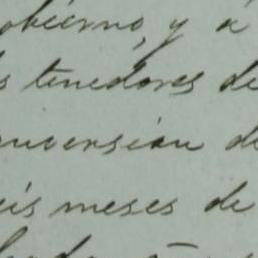 obierno, y á
s tenedores de
nversión de
eis meses de